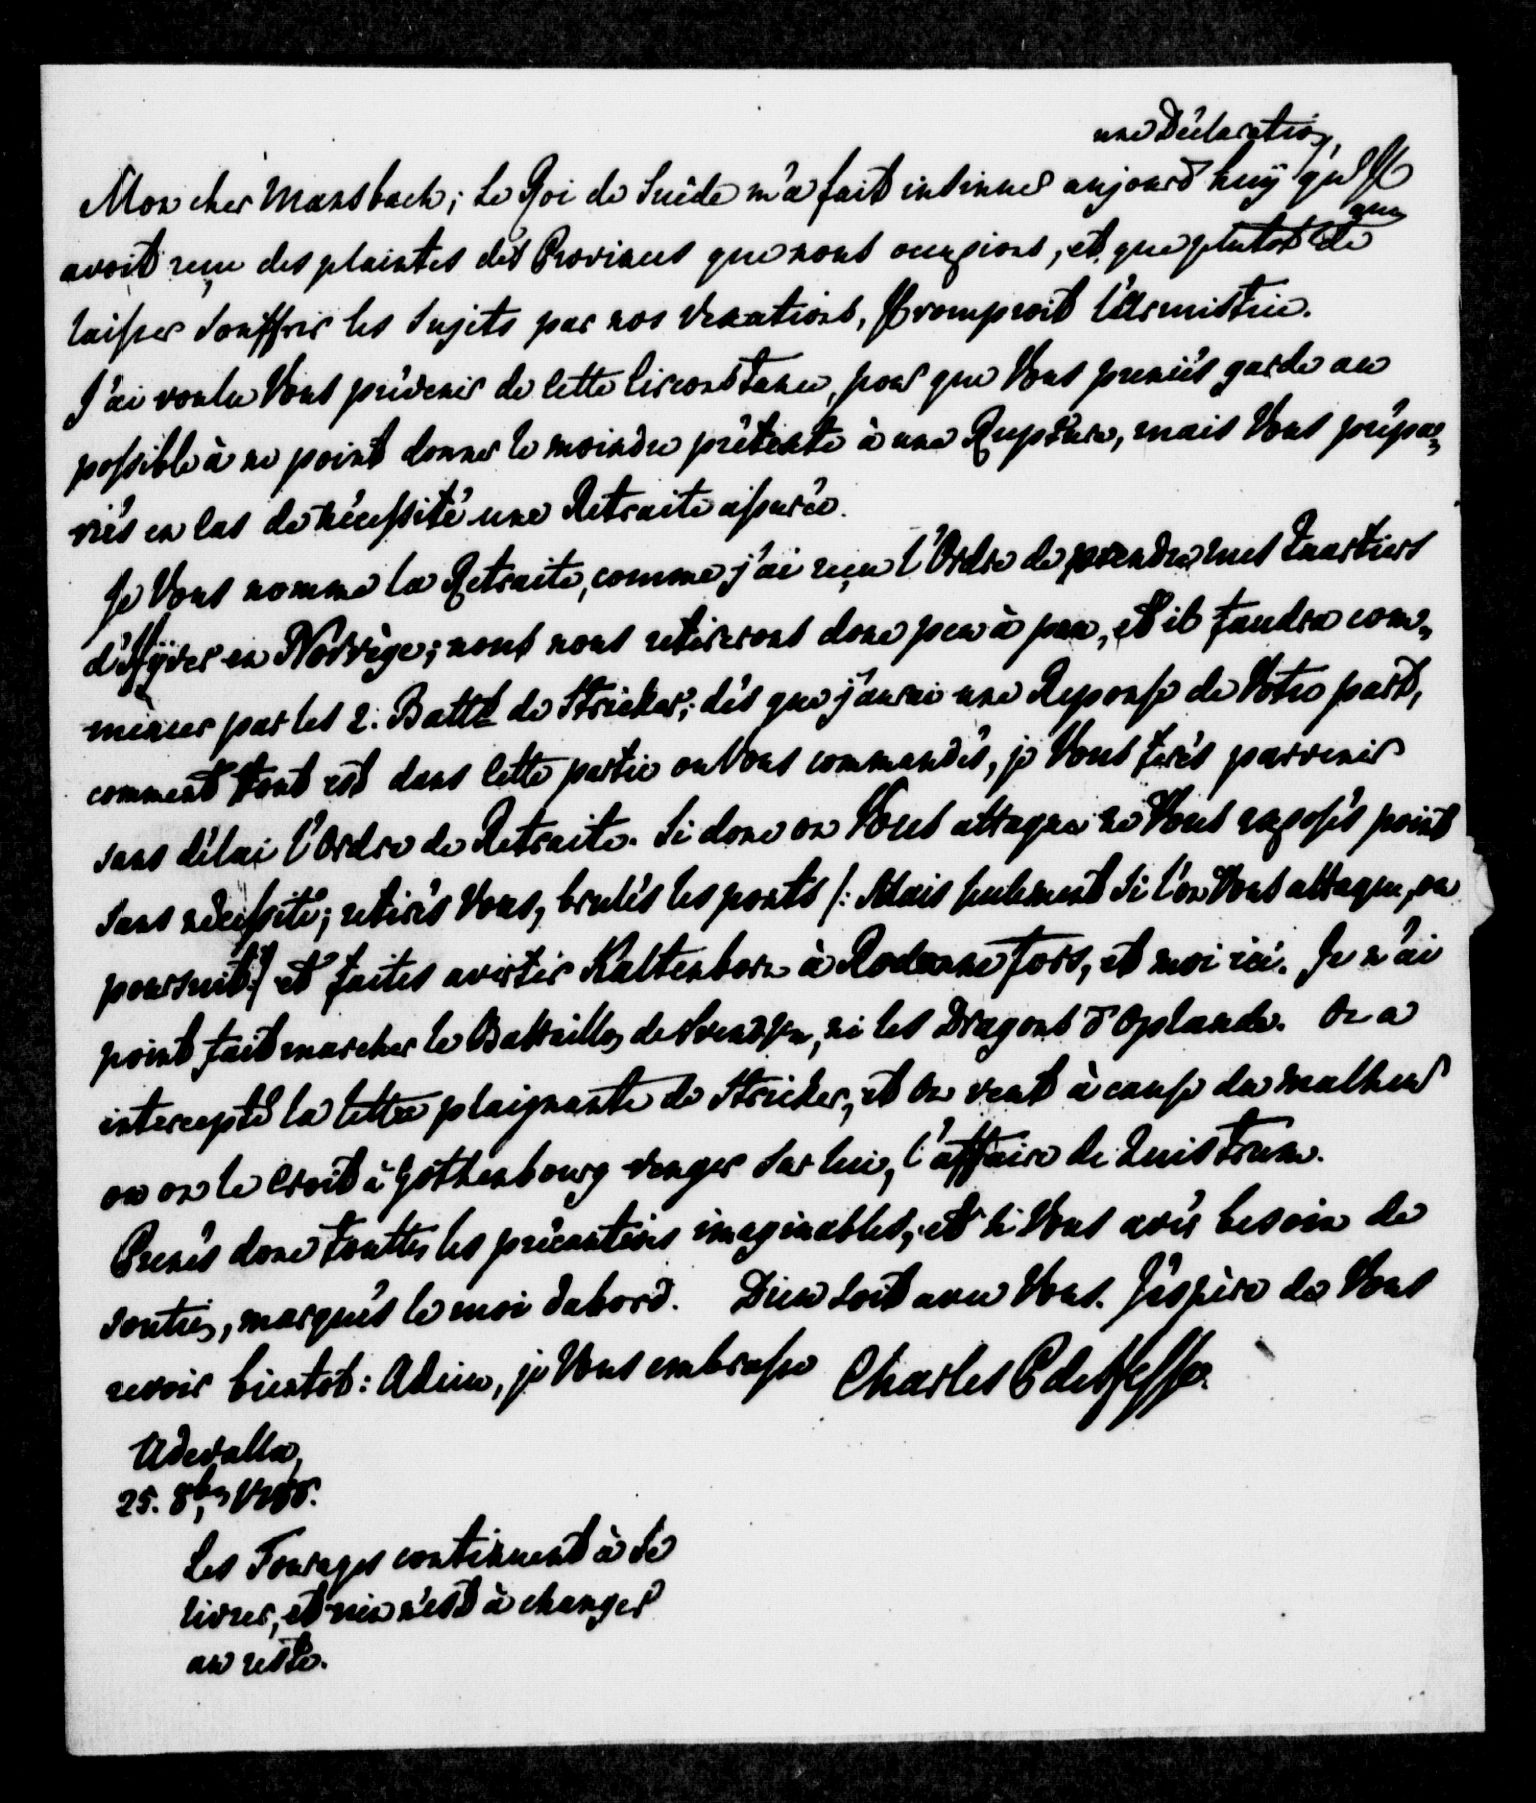 une Déclaration,
Mon cher Mansbach; Le Roi de Suède m'a fait intimer aujourd'huÿ qu'Il
avoit reçu des plaintes des Provinces que nous occupions, et que plutot que de
laisser souffrir les Sujets par nos Vexations, Il romproit l'Armistice.
J'ai voulu Vous prévenir de cette Circonstance, pour que Vous preniés garde au
possible à ne point donner le moindre prétexte à une Rupture, mais Vous prépa=
riés en cas de nécessité une Retraite assurée.
Je Vous nomme la Retraite, comme j'ai reçu l'Ordre de prendre mes Quartiers
d'Hÿver en Norvège; nous nous retirerons donc peu à peu, et il faudra com=
mencer par les 2. Batt: de Stricker; dès que j'aurai une Reponse de Votre part,
comment tout est dans cette partie ou Vous commandés, je Vous ferés parvenir
sans délai l'Ordre de Retraite. Si donc on Vous attaque ne Vous exposés point
sans nécessité; retirés Vous, brulés les ponts /: Mais seulement Si l'on Vous attaque, ou
poursuit :/ et faites avertir Kaltenborn à Rodanefors, et moi ici. Je n'ai
point fait marcher le Bataillon de Svendsen, ni les Dragons d'Oplande. On a
intercepté la lettre plaignante de Stricker, et on veut à cause du malheur
ou on le croit à Gothenbourg venger sur lui, l'affaire de Quistrum.
Prenés donc touttes les précautions imaginables, et si Vous avés besoin de
soutien, marqués le moi dabord. Dieu soit avec Vous. J'espère de Vous
revoir bientot: Adieu, je Vous embrasse Charles P de Hesse.
Udevalla,
25. 8br 1788.
Les Fourages continuent à se
livrer, et rien n'est à changer
au reste.